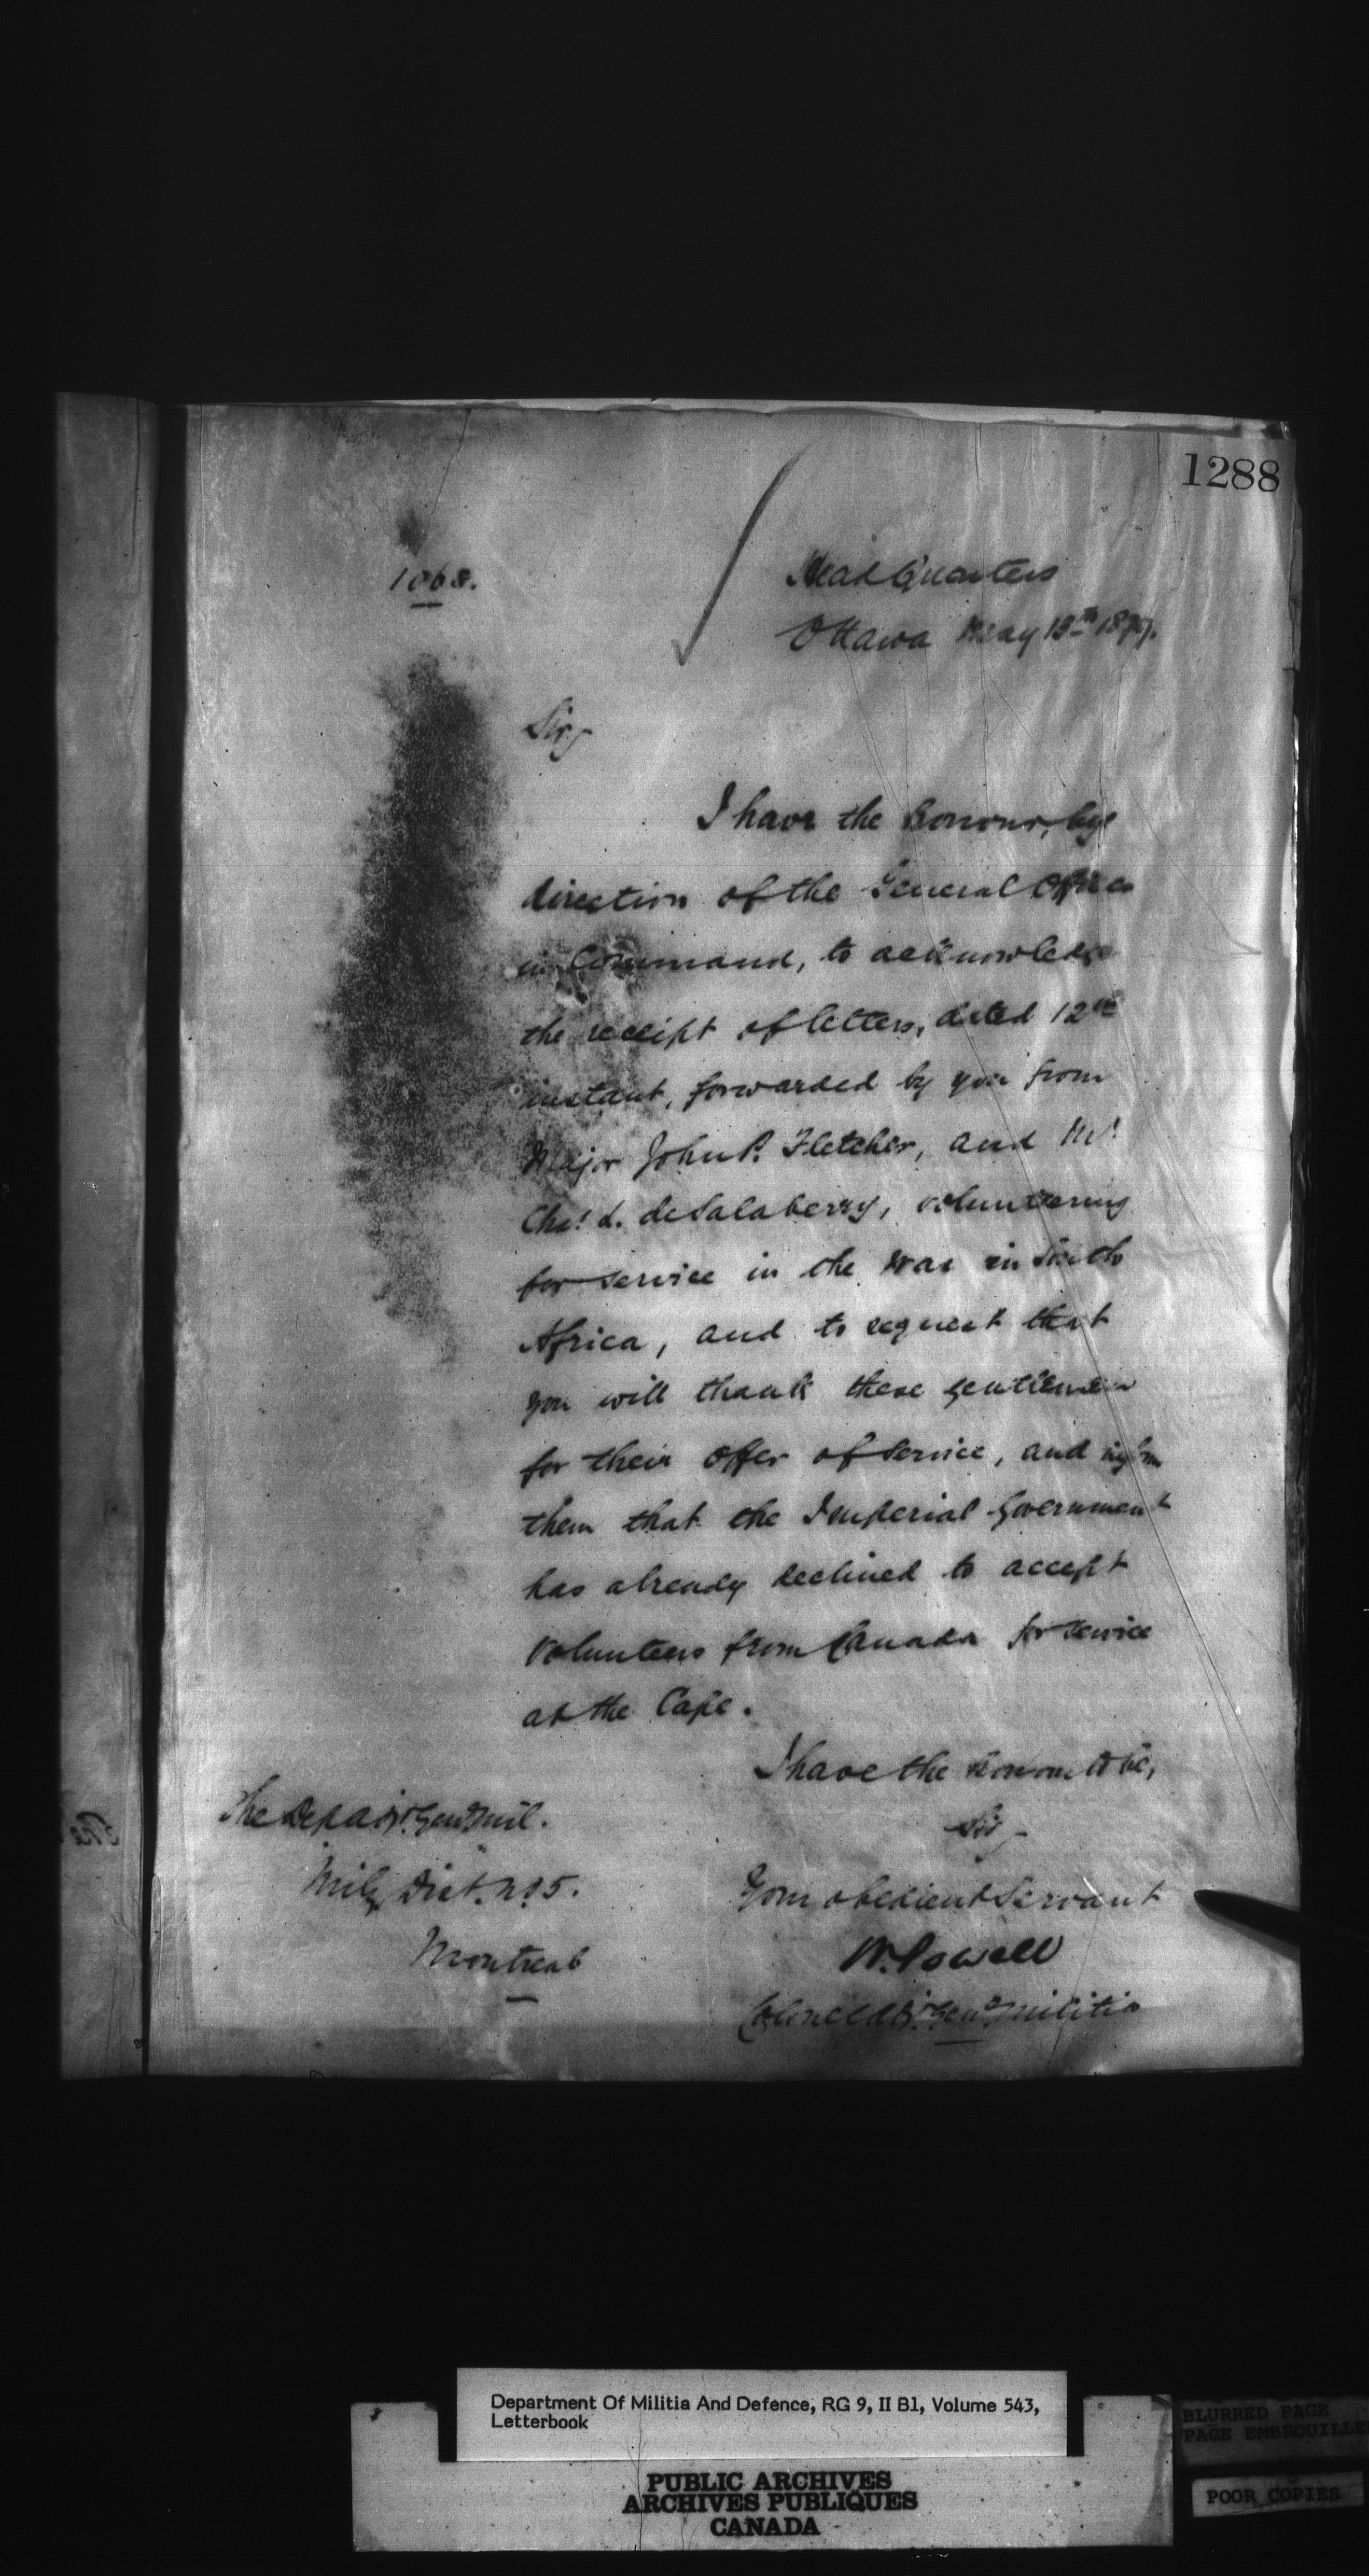 1288
1068.
Head Quarters
Ottawa May 13th 1879.
Sir,
I have the honour, by
direction of the General Officer
in Command, to acknowledge
the receipt of letters, dated 12th
instant, forwarded by you from
Major John P. Fletcher, and Mr.
Chas. L. deSalaberry, volunteering
for service in the War in South
Africa, and to request that
you will thank these gentlemen
for their offer of service, and inform
them that the Imperial Government
has already declined to accept
Volunteers from Canada for service
at the Cape.
I have the honour to be,
Sir,
Your obedient Servant
W. Powell
Colonel Adjt. Genl. Militia
The Dep. Adjt. Genl. Mil.
Mily Dist. No. 5.
Montreal
Department Of Militia And Defence, RG 9, II B1, Volume 543,
Letterbook
PUBLIC ARCHIVES
ARCHIVES PUBLIQUES
CANADA
BLURRED PAGE
PAGE EMBROUILLE
POOR COPIES